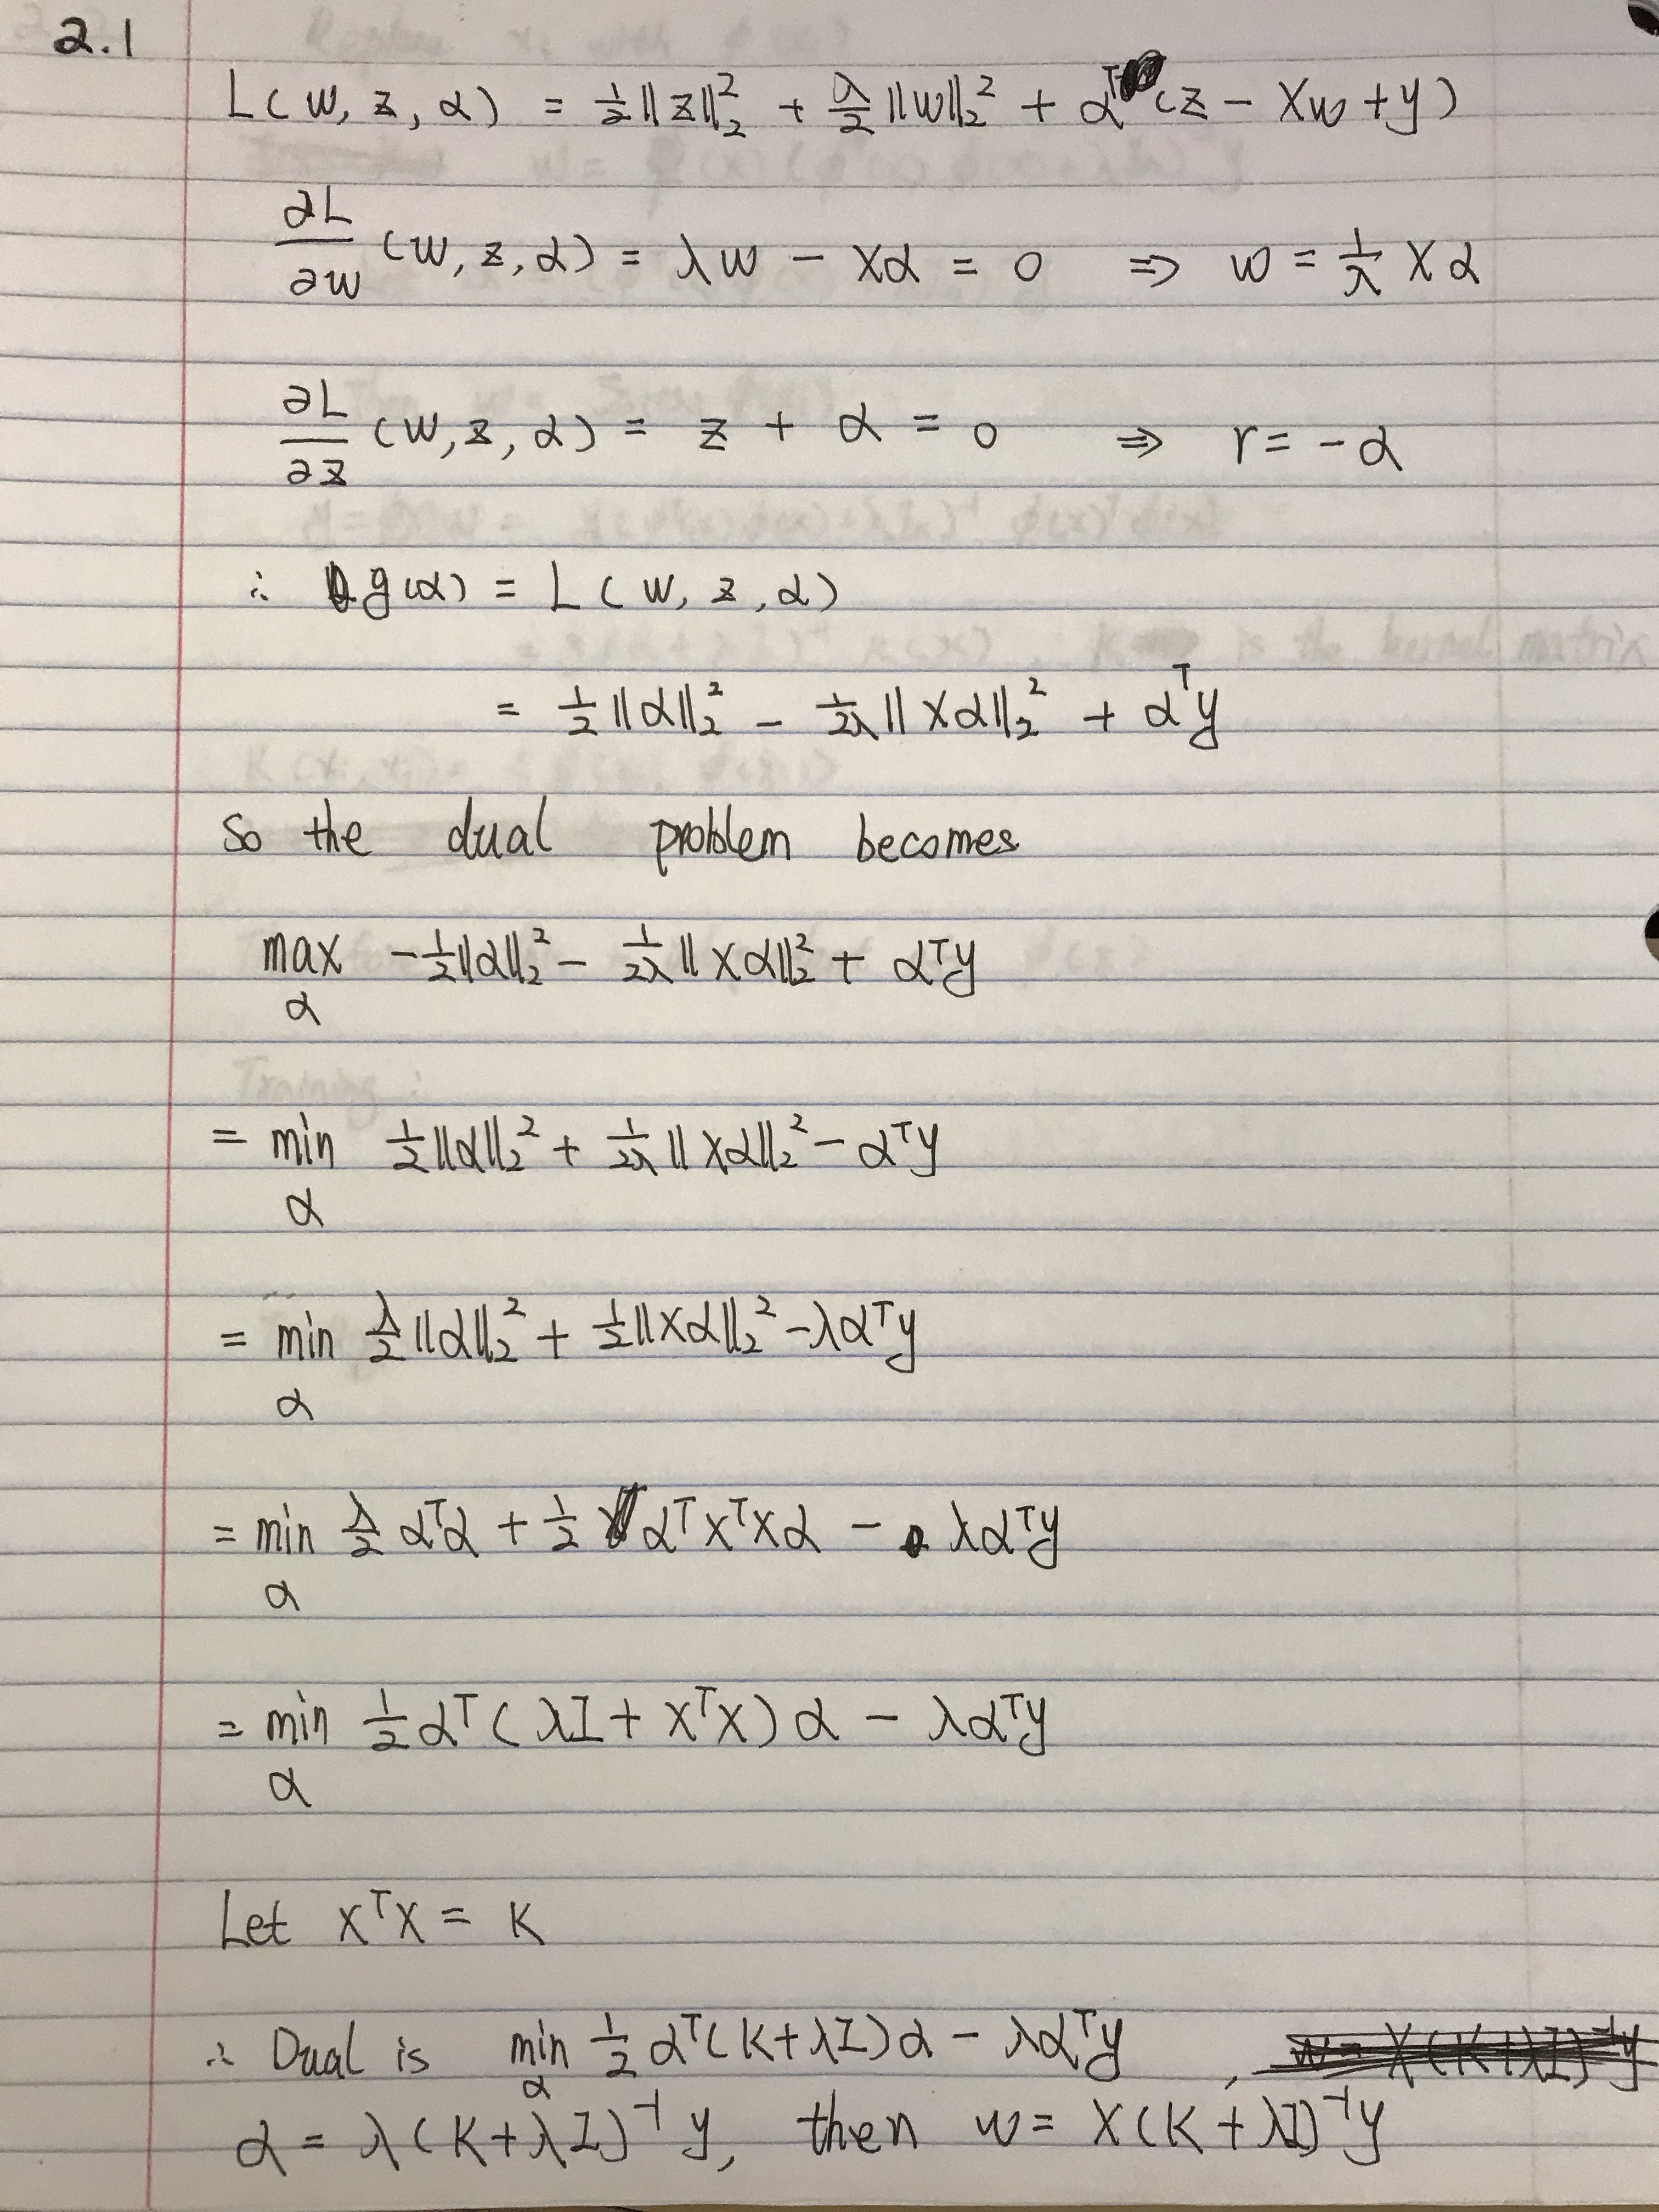 2.1
L(w, z, α) = ½‖z‖₂² + λ/2 ‖w‖₂² + αᵀ(z − Xw + y)
∂L/∂w (w, z, α) = λw − Xα = 0 ⇒ w = 1/λ Xα
∂L/∂z (w, z, α) = z + α = 0 ⇒ r = −α
∴ g(α) = L(w, z, α)
= ½‖α‖₂² − 1/2λ ‖Xα‖₂² + αᵀy
So the dual problem becomes
max_α −½‖α‖₂² − 1/2λ ‖Xα‖₂² + αᵀy
= min_α ½‖α‖₂² + 1/2λ ‖Xα‖₂² − αᵀy
= min_α λ/2 ‖α‖₂² + ½‖Xα‖₂² − λαᵀy
= min_α λ/2 αᵀα + ½ αᵀXᵀXα − λαᵀy
= min_α ½ αᵀ(λI + XᵀX)α − λαᵀy
Let XᵀX = K
∴ Dual is min_α ½ αᵀ(K+λI)α − λαᵀy ,
α = λ(K+λI)⁻¹y, then w = X(K+λI)⁻¹y